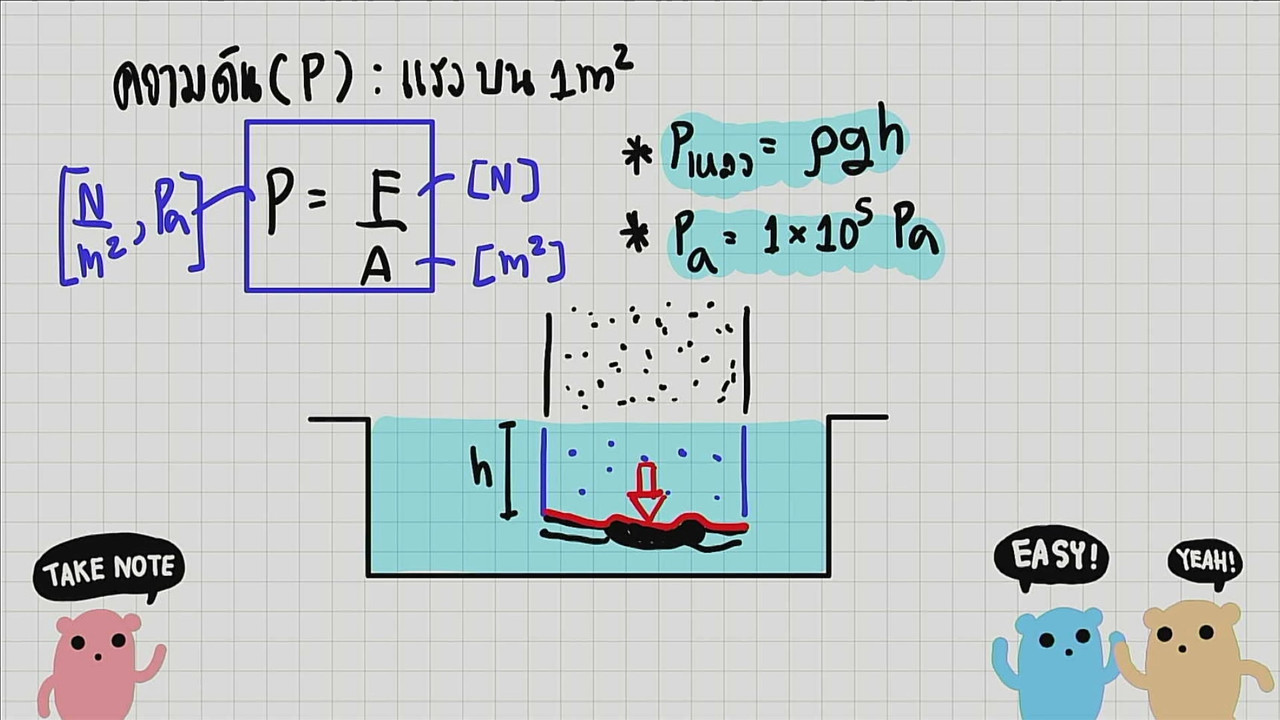 ความดัน (P) : แรง บน 1m²
[N/m², Pa] P = F/A [N] [m²]
* Pเหลว = ρgh
* Pa = 1 × 10⁵ Pa
h
TAKE NOTE
EASY!
YEAH!